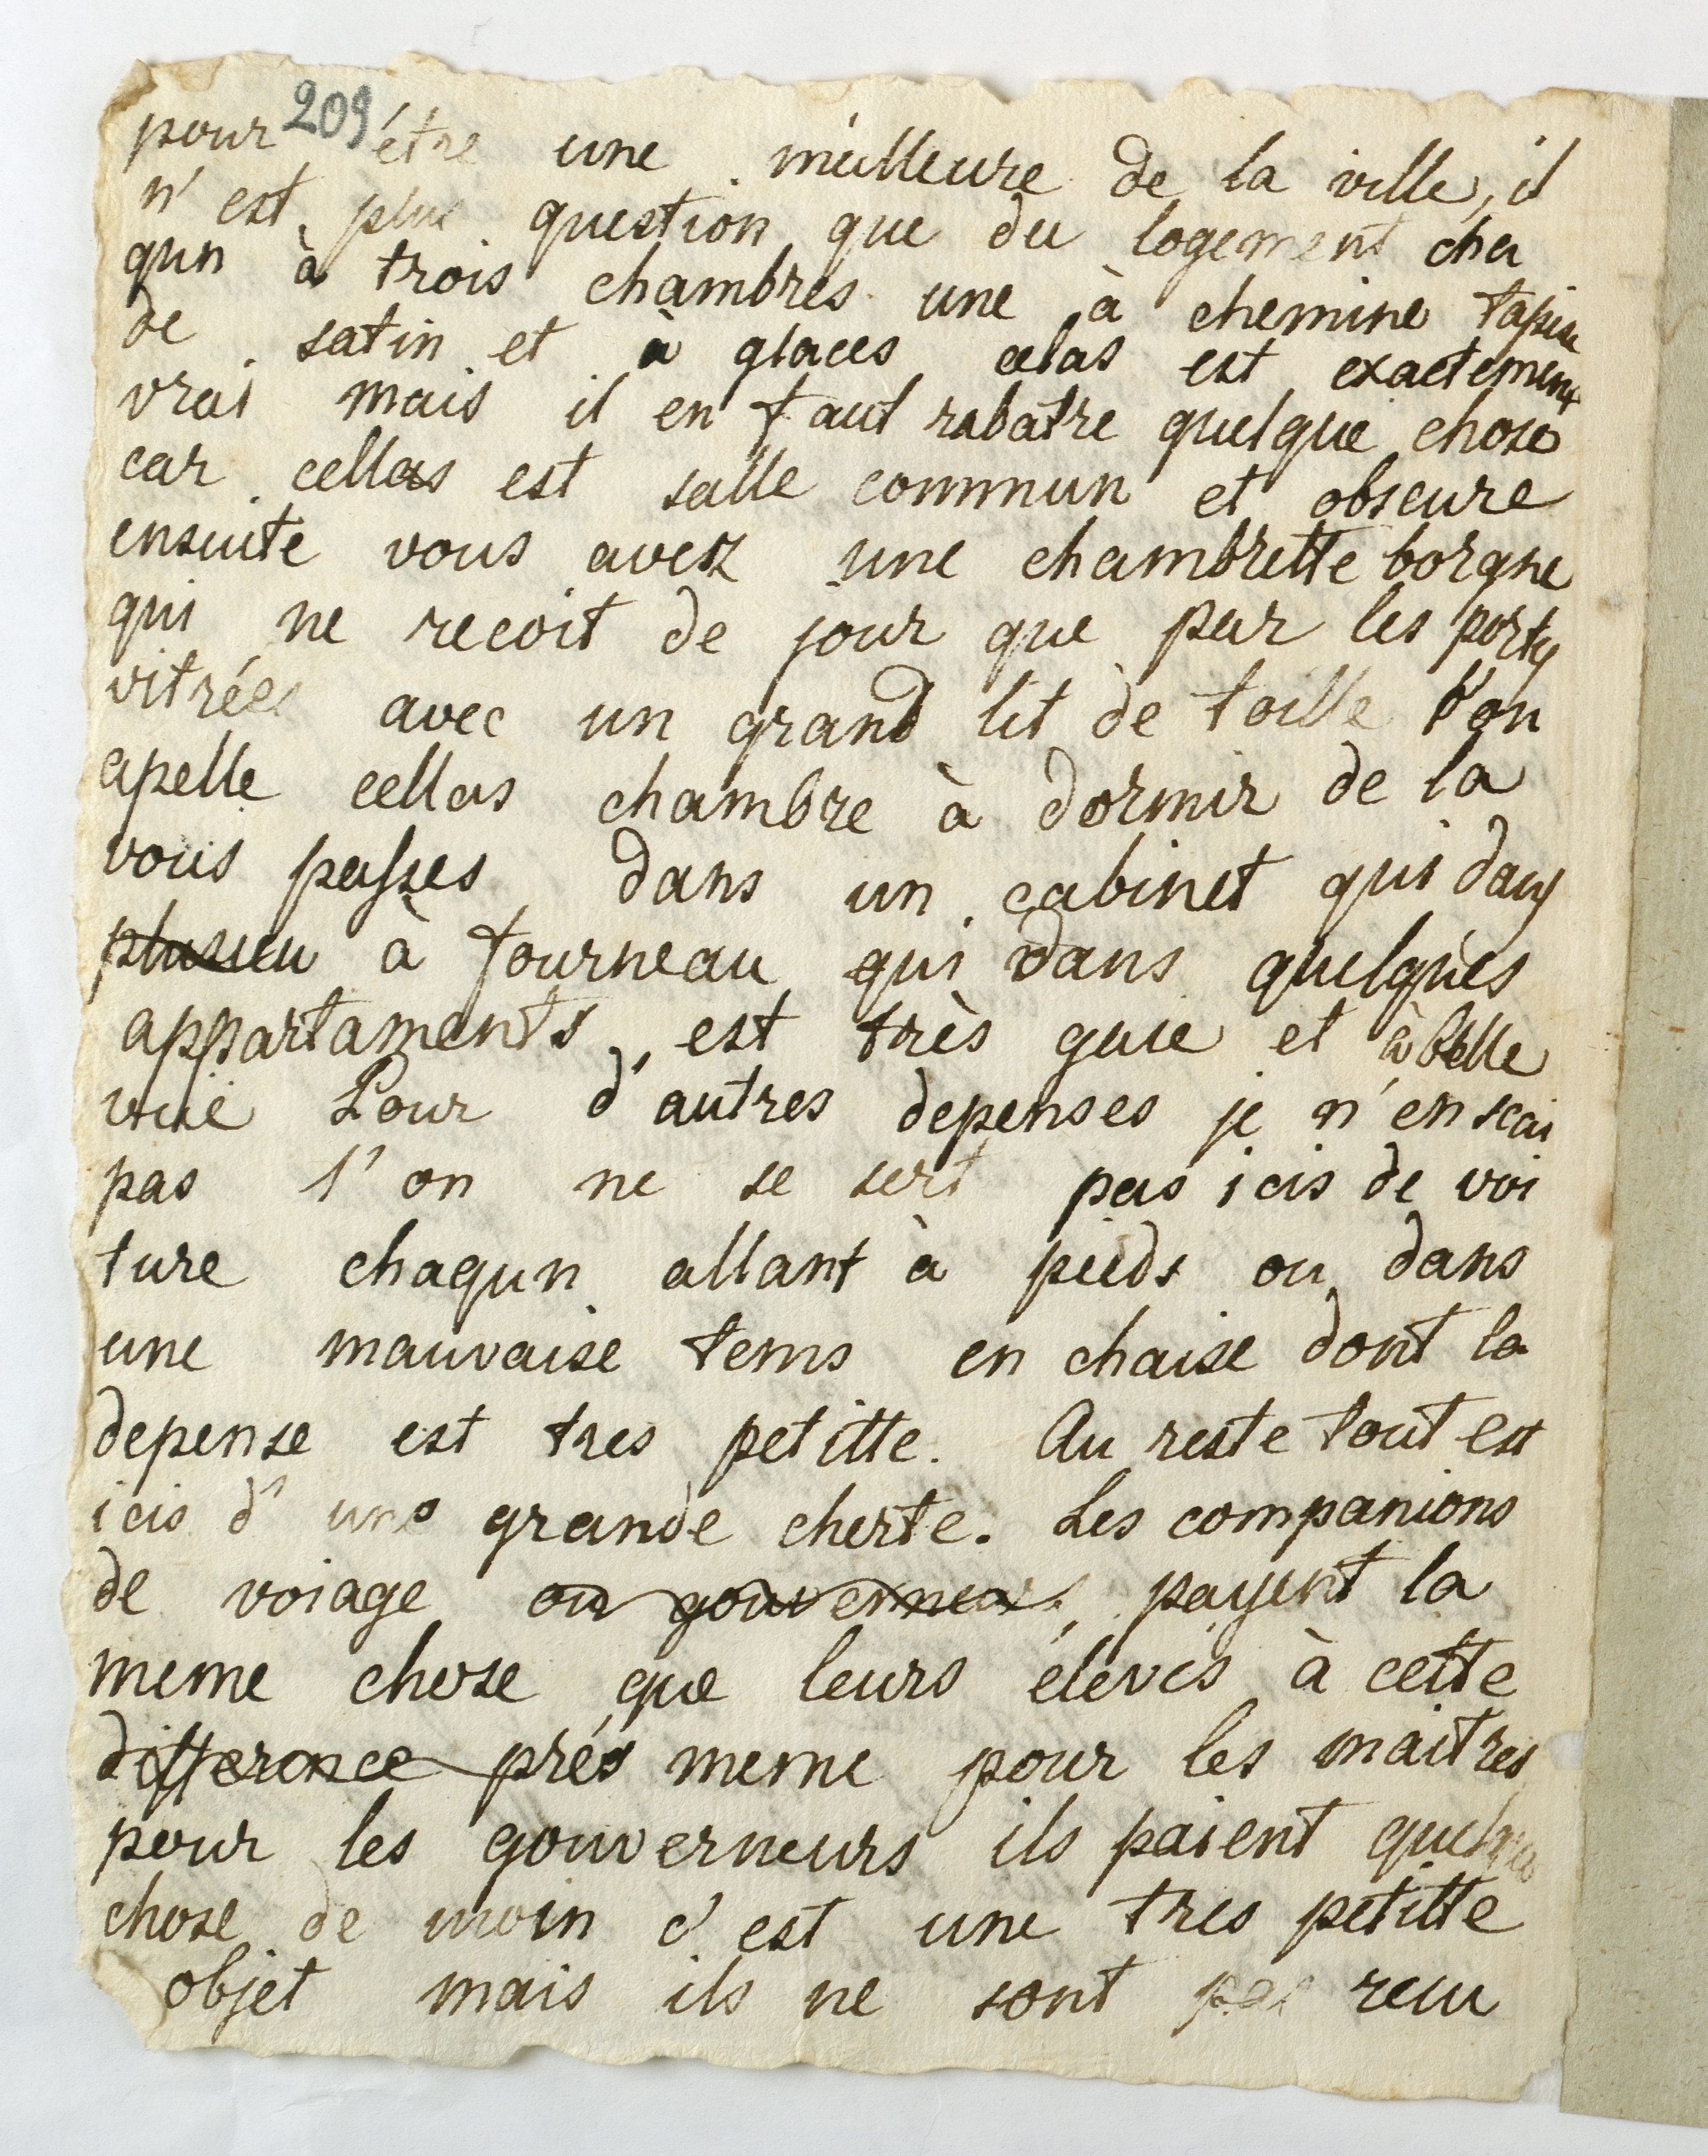 209
pour être une meilleure de la ville, il
n'est plus question que du logement cha
qun à trois chambres une à chemine tapise
de satin et à glaces celas est exactement
vrai mais il en faut rabatre quelque chose
car cellas est salle commun et obscure
ensuite vous avesz une chambrette borgne
qui ne recoit de jour que par les portes
vitrées avec un grand lit de toille l'on
apelle cellas chambre à dormir de la
vous passes dans un cabinet qui dans
plusieu à fourneau qui dans quelques
appartaments, est très guie et à belle
vuie Pour d'autres depenses je n'en scai
pas l'on ne se sert pas icis de voi
ture chaqun allant à pieds ou dans
une mauvaise tems en chaise dont la
depense est tres petitte. Au reste tout est
icis d'une grande cherte. Les companions
de voiage ou gouverneur payent la
meme chose que leurs éleves à cette
difference prés meme pour les maitres
pour les gouverneurs ils paient quelque
chose de moin c'est une tres petitte
objet mais ils ne sont pas recu